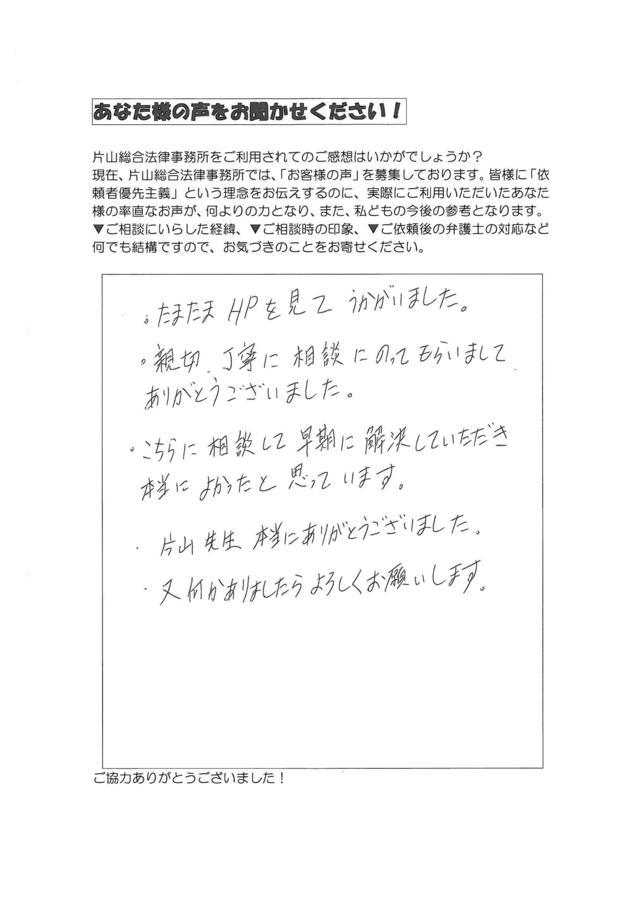 あなた様の声をお聞かせください！
片山総合法律事務所をご利用されてのご感想はいかがでしょうか？
現在、片山総合法律事務所では、「お客様の声」を募集しております。皆様に「依
頼者優先主義」という理念をお伝えするのに、実際にご利用いただいたあなた
様の率直なお声が、何よりの力となり、また、私どもの今後の参考となります。
▼ご相談にいらした経緯、▼ご相談時の印象、▼ご依頼後の弁護士の対応など
何でも結構ですので、お気づきのことをお寄せください。
・たまたまHPを見てうかがいました。
・親切、丁寧に相談にのってもらいまして
ありがとうございました。
・こちらに相談して早期に解決していただき
本当によかったと思っています。
・片山先生本当にありがとうございました。
・又何かありましたらよろしくお願いします。
ご協力ありがとうございました！